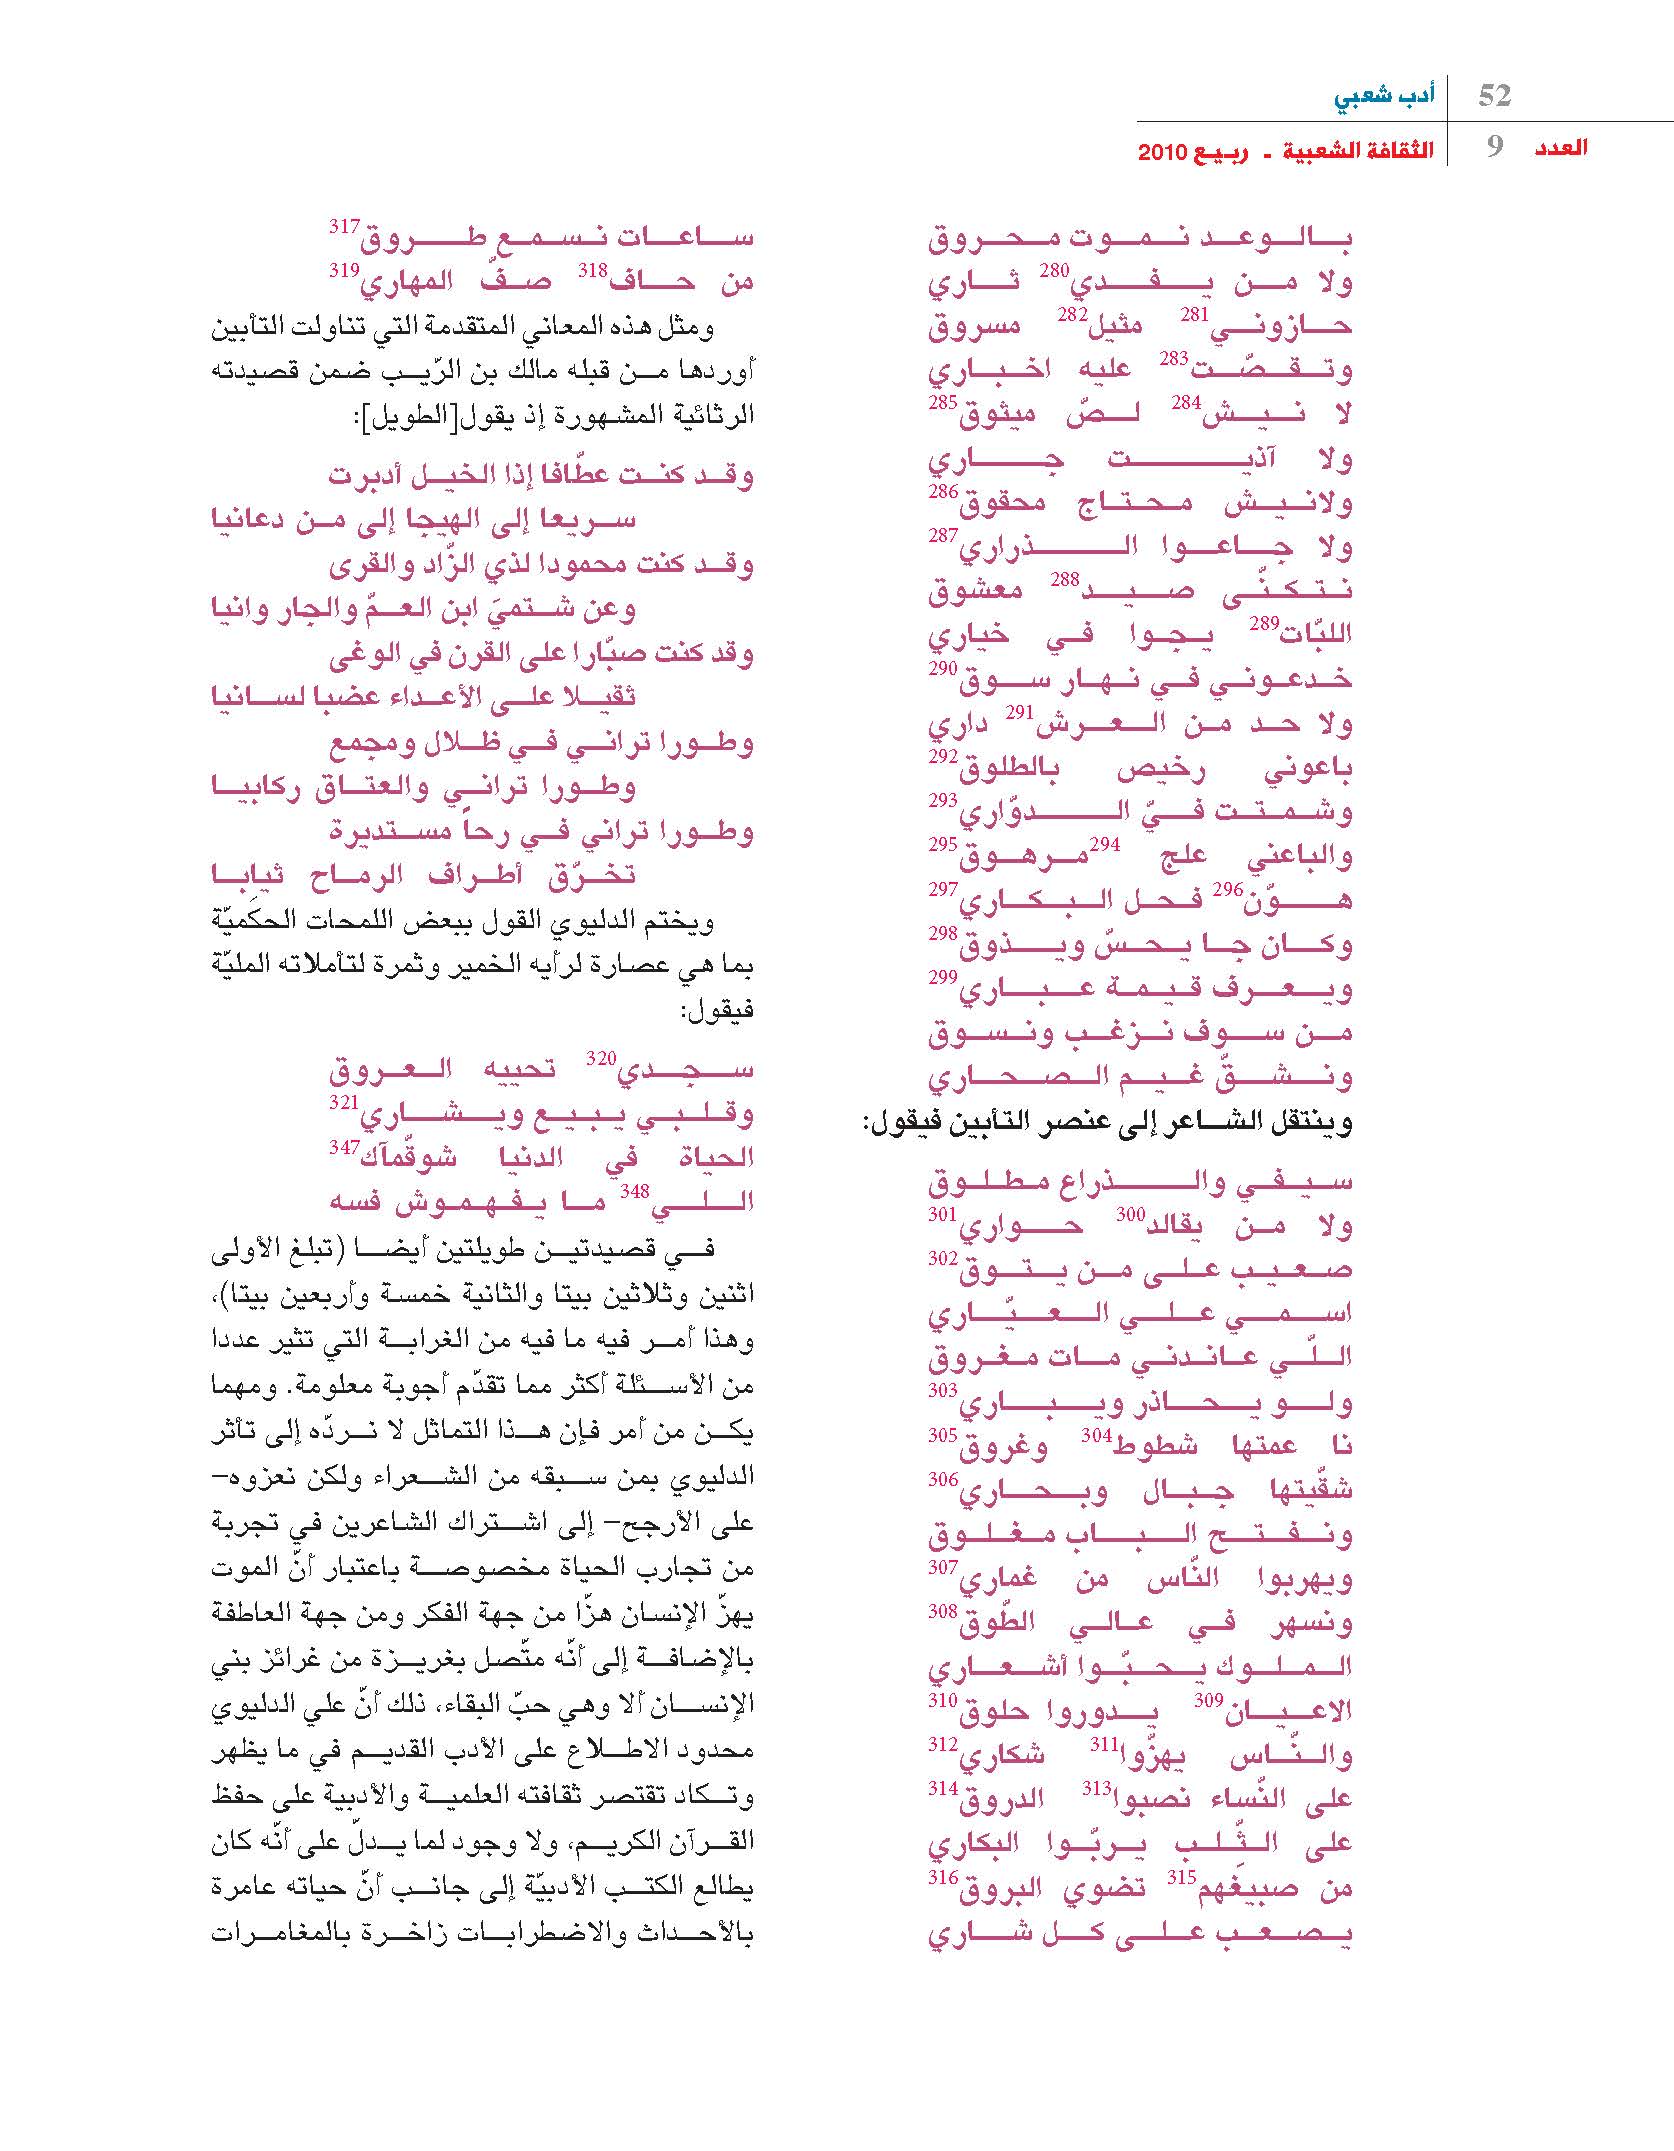 52
أدب شعبي
العدد 9
الثقافة الشعبية - ربيع 2010
بالوعد نموت محروق
ولا من يفدي280 ثاري
حازوني281 مثيل282 مسروق
وتقصّت283 عليه اخباري
لا نيش284 لصّ ميثوق285
ولا آذيت جاري
ولانيش محتاج محقوق286
ولا جاعوا الذراري287
نتكنّى صيد288 معشوق
اللبّات289 يجوا في خياري
خدعوني في نهار سوق290
ولا حد من العرش291 داري
باعوني رخيص بالطلوق292
وشمتت فيّ الدوّاري293
والباعني علج 294مرهوق295
هوّن296 فحل البكاري297
وكان جا يحسّ ويذوق298
ويعرف قيمة عباري299
من سوف نزغب ونسوق
ونشقّ غيم الصحاري
وينتقل الشاعر إلى عنصر التأبين فيقول:
سيفي والذراع مطلوق
ولا من يقالد300 حواري301
صعيب على من يتوق302
اسمي علي العيّاري
اللّي عاندني مات مغروق
ولو يحاذر ويباري303
نا عمتها شطوط304 وغروق305
شقّيتها جبال وبحاري306
ونفتح الباب مغلوق
ويهربوا النّاس من غماري307
ونسهر في عالي الطّوق308
الملوك يحبّوا أشعاري
الاعيان309 يدوروا حلوق310
والنّاس يهزّوا311 شكاري312
على النّساء نصبوا313 الدروق314
على الثِّلب يربّوا البكاري
من صبيغهم315 تضوي البروق316
يصعب على كل شاري
ساعات نسمع طروق317
من حاف318 صفّ المهاري319
ومثل هذه المعاني المتقدمة التي تناولت التأبين
أوردها من قبله مالك بن الرّيب ضمن قصيدته
الرثائية المشهورة إذ يقول[الطويل]:
وقد كنت عطّافا إذا الخيل أدبرت
سريعا إلى الهيجا إلى من دعانيا
وقد كنت محمودا لذي الزّاد والقرى
وعن شتميَ ابن العمّ والجار وانيا
وقد كنت صبّارا على القرن في الوغى
ثقيلا على الأعداء عضبا لسانيا
وطورا تراني في ظلال ومجمع
وطورا تراني والعتاق ركابيا
وطورا تراني في راحاً مستديرة
تخرّق أطراف الرماح ثيابيا
ويختم الديلوي القول ببعض اللمحات الحكَميّة
بما هي عصارة لرأيه الخمير وثمرة لتأملاته المليّة
فيقول:
سجدي320 تحييه العروق
وقلبي يبيع ويشاري321
الحياة في الدنيا شوقّمآك347
اللي348 ما يفهموش فسه
في قصيدتين طويلتين أيضا (تبلغ الأولى
اثنين وثلاثين بيتا والثانية خمسة وأربعين بيتا)،
وهذا أمر فيه ما فيه من الغرابة التي تثير عددا
من الأسئلة أكثر مما تقدّم أجوبة معلومة. ومهما
يكن من أمر فإن هذا التماثل لا نردّه إلى تأثر
الدليوي بمن سبقه من الشعراء ولكن نعزوه-
على الأرجح- إلى اشتراك الشاعرين في تجربة
من تجارب الحياة مخصوصة باعتبار أنّ الموت
يهزّ الإنسان هزّا من جهة الكفر ومن جهة العاطفة
بالإضافة إلى أنّه متّصل بغريزة من غرائز بني
الإنسان ألا وهي حبّ البقاء، ذلك أنّ علي الديلوي
محدود الاطلاع على الأدب القديم في ما يظهر
وتكاد تقتصر ثقافته العلمية والأدبية على حفظ
القرآن الكريم، ولا وجود لما يدلّ على أنّه كان
يطالع الكتب الأدبيّة إلى جانب أنّ حياته عامرة
بالأحداث والاضطرابات زاخرة بالمغامرات